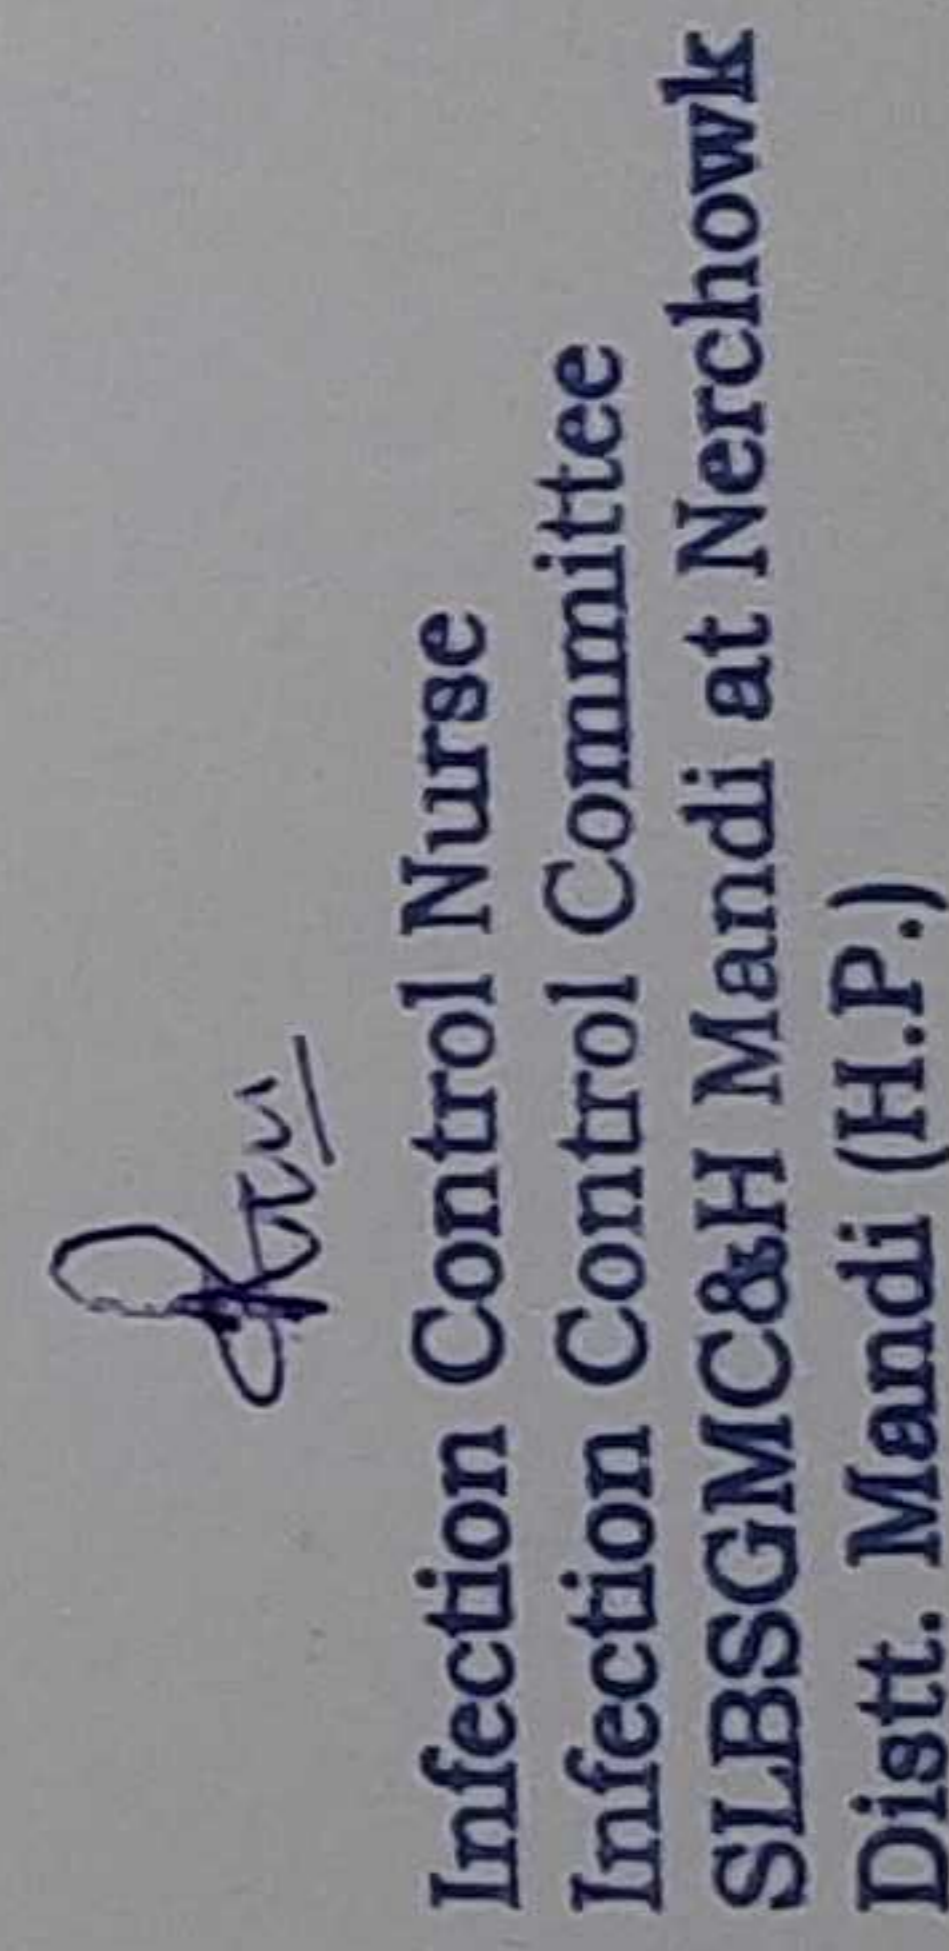 Infection Control Nurse
Infection Control Committee
SLBSGMC&H Mandi at Nerchowk
Distt. Mandi (H.P.)